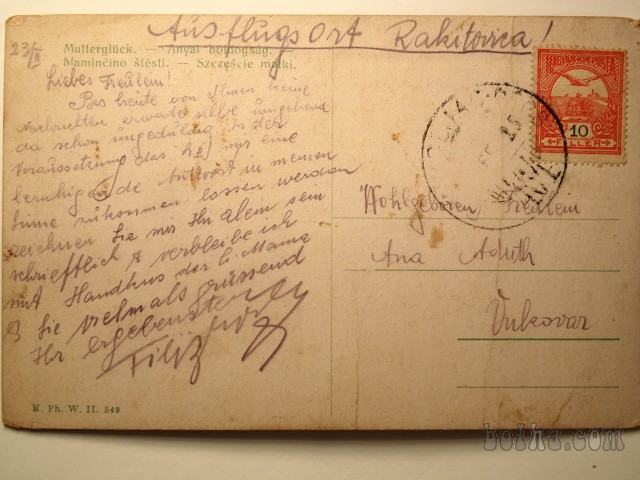 Ausflugs Ort Rakitovica!
23/II
Mutterglück. — Anyai boldogság.
Maminčino štěstí. — Szczęście matki.
Liebes Freulein!
Bis heute von Ihnen keine
Nachrichten erwarte selbe umgehend
da schon ungeduldig. In der
Voraussetzung das Sie mir eine
beruhigende Antwort in meinen
Sinne zukommen lassen werden
zeichnen Sie mir Ihr allem sein
schriftlich & verbleibe ich
mit Handkus der l. Mama
& Sie vielmals grüssend
Ihr ergebenster
K. Ph. W. II. 549
MAGYAR KIR. POSTA
10
FILLER
Wohlgeboren Freulein
Ana
Vukovar
bolha.com